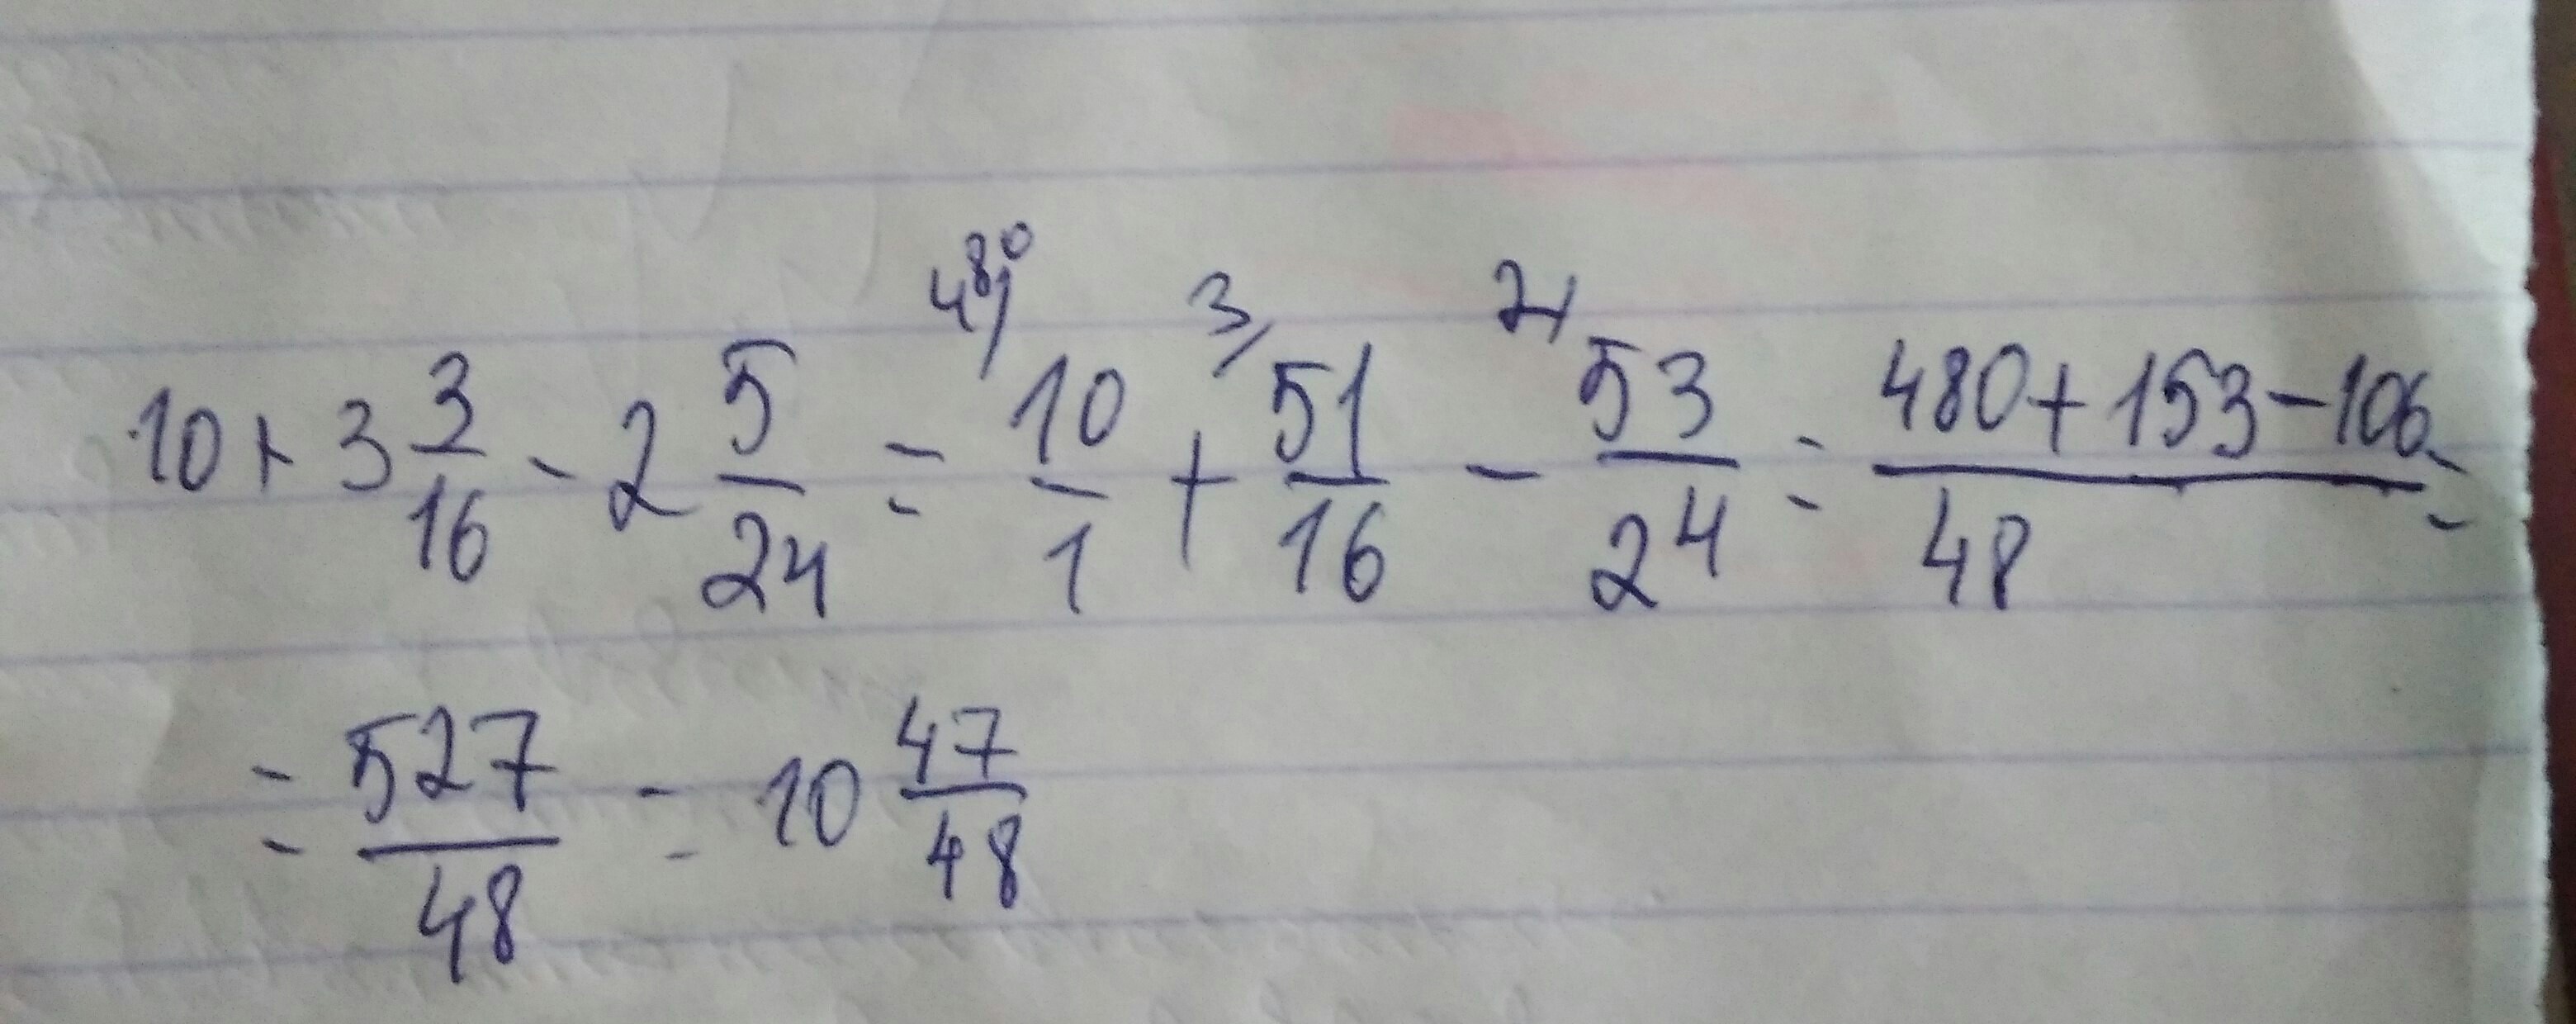 10 + 3 3/16 - 2 5/24 = 48) 10/1 + 3/ 51/16 - 2/ 53/24 = 480 + 153 - 106/48 =
= 527/48 = 10 47/48